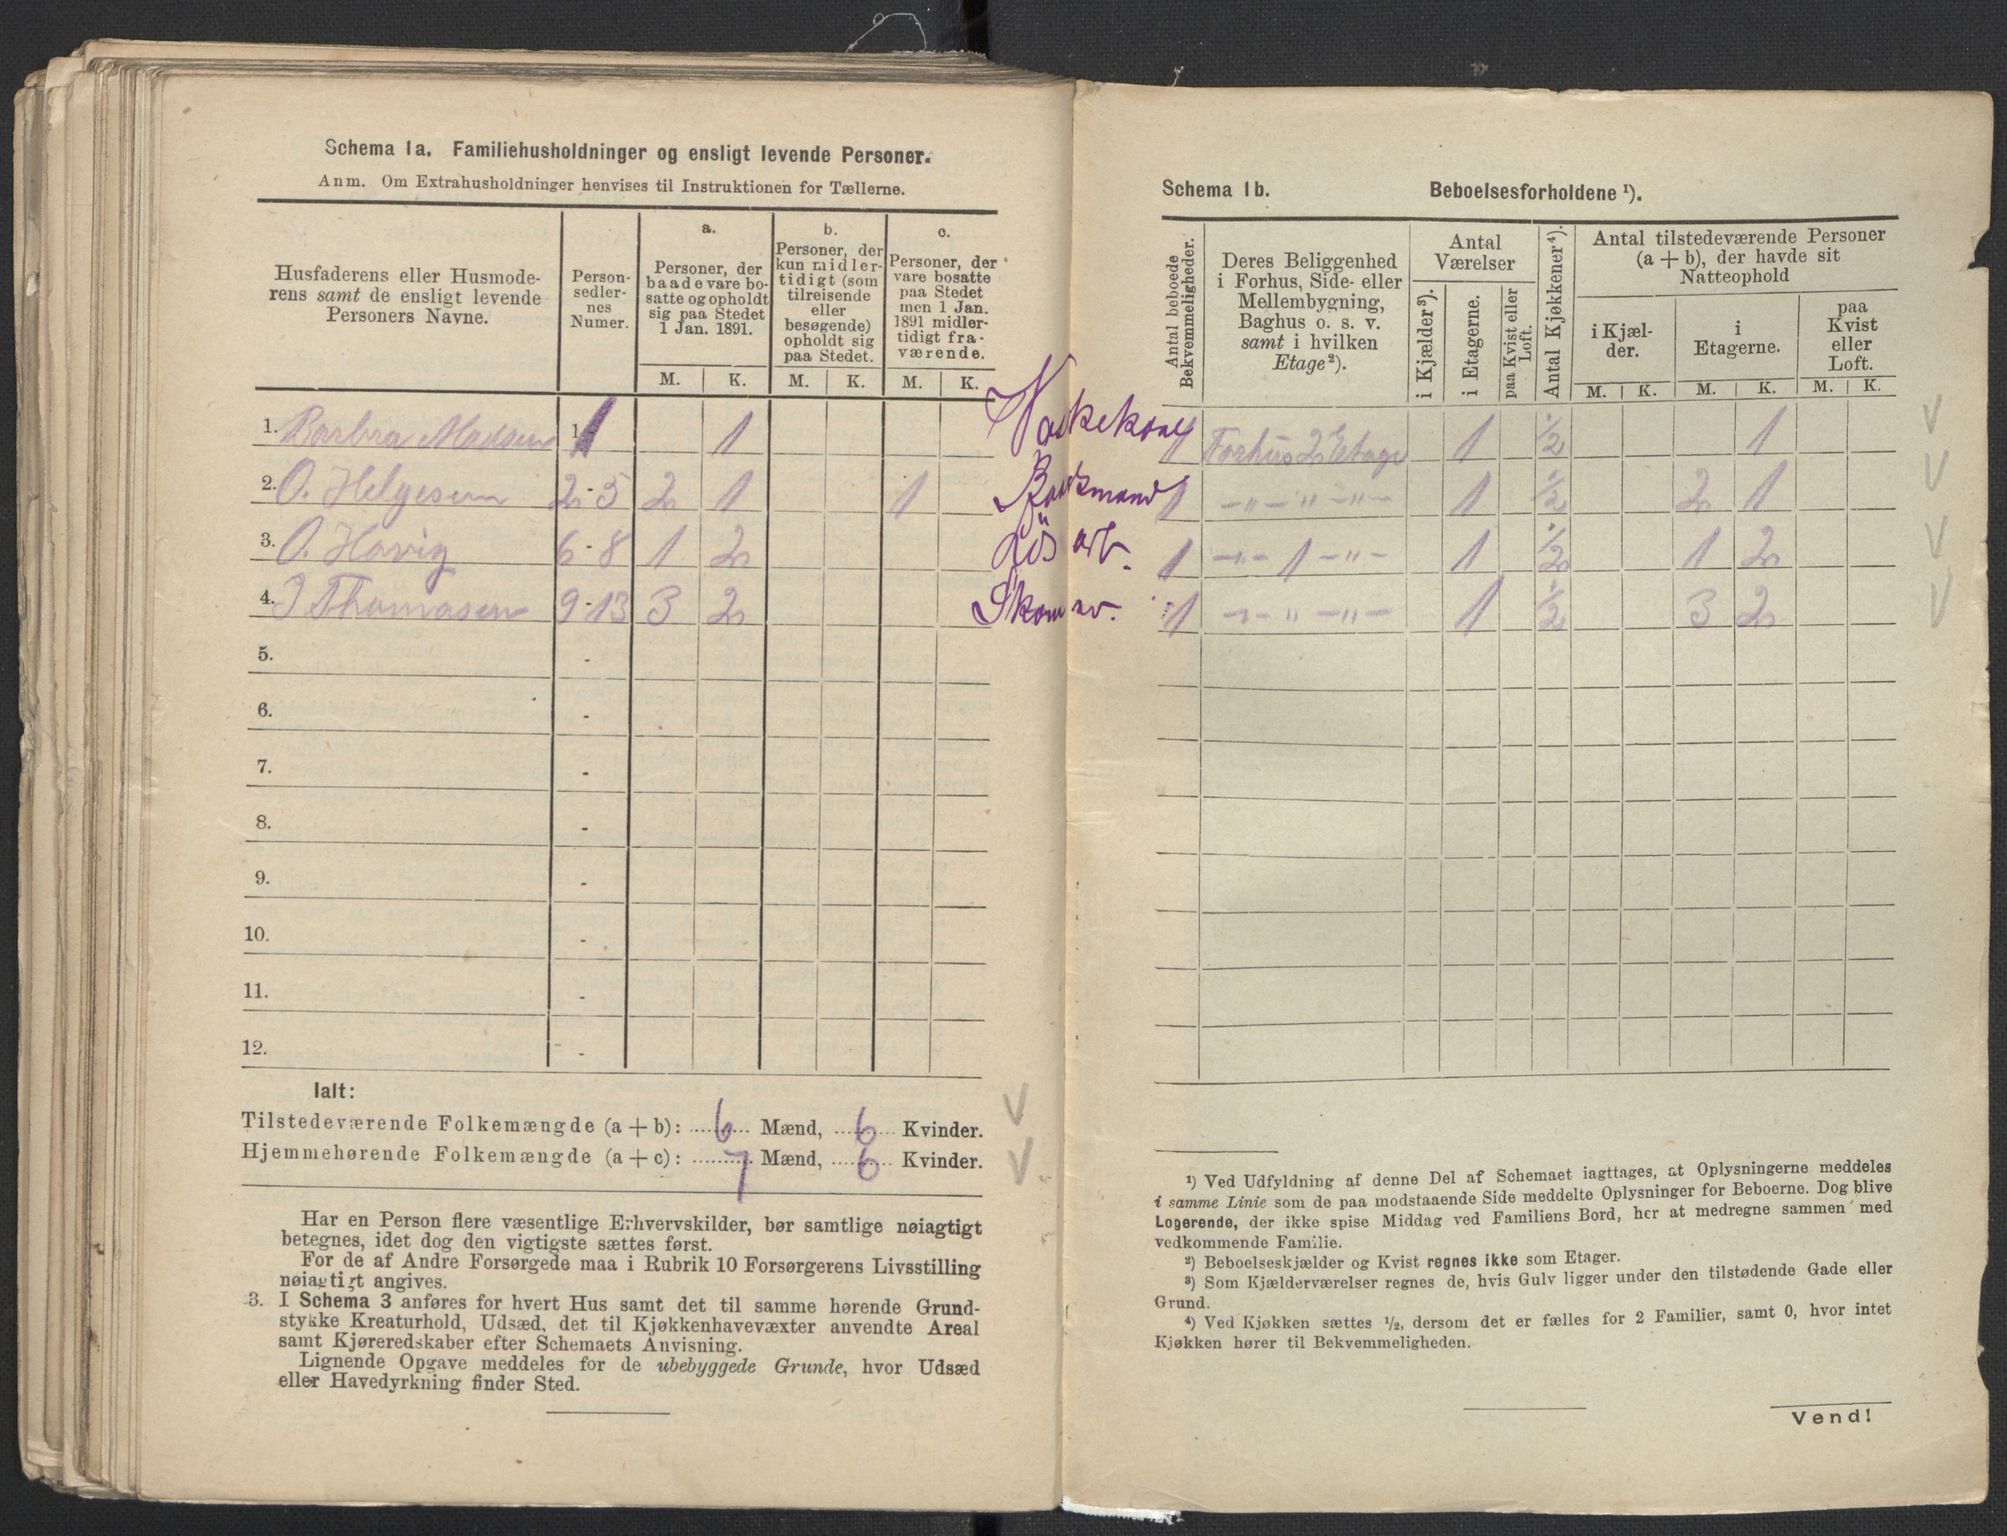 Schema 1a. Familiehusholdninger og ensligt levende Personer.
Anm. Om Extrahusholdninger henvises til Instruktionen for Tællerne.
Husfaderens eller Husmode-
rens samt de ensligt levende
Personers Navne.
Person-
sedler-
nes
Numer.
a.
Personer, der
baade vare bo-
satte og opholdt
sig paa Stedet
1 Jan. 1891.
b.
Personer, der
kun midler-
tidigt (som
tilreisende
eller
besøgende)
opholdt sig
paa Stedet.
c.
Personer, der
vare bosatte
paa Stedet
men 1 Jan.
1891 midler-
tidigt fra-
værende.
M. K. M. K. M. K.
1. Barbra Madsen 1 1
2. O. Helgesen 2-5 2 1 1
3. O. Havig 6-8 1 2
4. J Thomasen 9-13 3 2
5. -
6. -
7. -
8. -
9. -
10. -
11. -
12. -
Ialt:
Tilstedeværende Folkemængde (a + b): 6 Mænd, 6 Kvinder.
Hjemmehørende Folkemængde (a + c): 7 Mænd, 6 Kvinder.
Har en Person flere væsentlige Erhvervskilder, bør samtlige nøiagtigt
betegnes, idet dog den vigtigste sættes først.
For de af Andre Forsørgede maa i Rubrik 10 Forsørgerens Livsstilling
nøiagtigt angives.
3. I Schema 3 anføres for hvert Hus samt det til samme hørende Grund-
stykke Kreaturhold, Udsæd, det til Kjøkkenhavevæxter anvendte Areal
samt Kjøreredskaber efter Schemaets Anvisning.
Lignende Opgave meddeles for de ubebyggede Grunde, hvor Udsæd
eller Havedyrkning finder Sted.
Schema 1b. Beboelsesforholdene ¹).
Antal beboede
Bekvemmeligheder.
Deres Beliggenhed
i Forhus, Side- eller
Mellembygning,
Baghus o. s. v.
samt i hvilken
Etage²).
Antal
Værelser
i Kjælder³).
i Etagerne.
paa Kvist eller
Loft.
Antal Kjøkkener⁴).
Antal tilstedeværende Personer
(a + b), der havde sit
Natteophold
i Kjæl-
der.
i
Etagerne.
paa
Kvist
eller
Loft.
M. K. M. K. M. K.
Vaskekone Forhus 2 Etage 1 ½ 1
1 -„- „ -„- 1 ½ 2 1
Løs arb. 1 -„- 1 -„- 1 ½ 1 2
Skomav. 1 -„- „ -„- 1 ½ 3 2
¹) Ved Udfyldning af denne Del af Schemaet iagttages, at Oplysningerne meddeles
i samme Linie som de paa modstaaende Side meddelte Oplysninger for Beboerne. Dog blive
Logerende, der ikke spise Middag ved Familiens Bord, her at medregne sammen med
vedkommende Familie.
²) Beboelseskjælder og Kvist regnes ikke som Etager.
³) Som Kjælderværelser regnes de, hvis Gulv ligger under den tilstødende Gade eller
Grund.
⁴) Ved Kjøkken sættes ½, dersom det er fælles for 2 Familier, samt 0, hvor intet
Kjøkken hører til Bekvemmeligheden.
Vend!